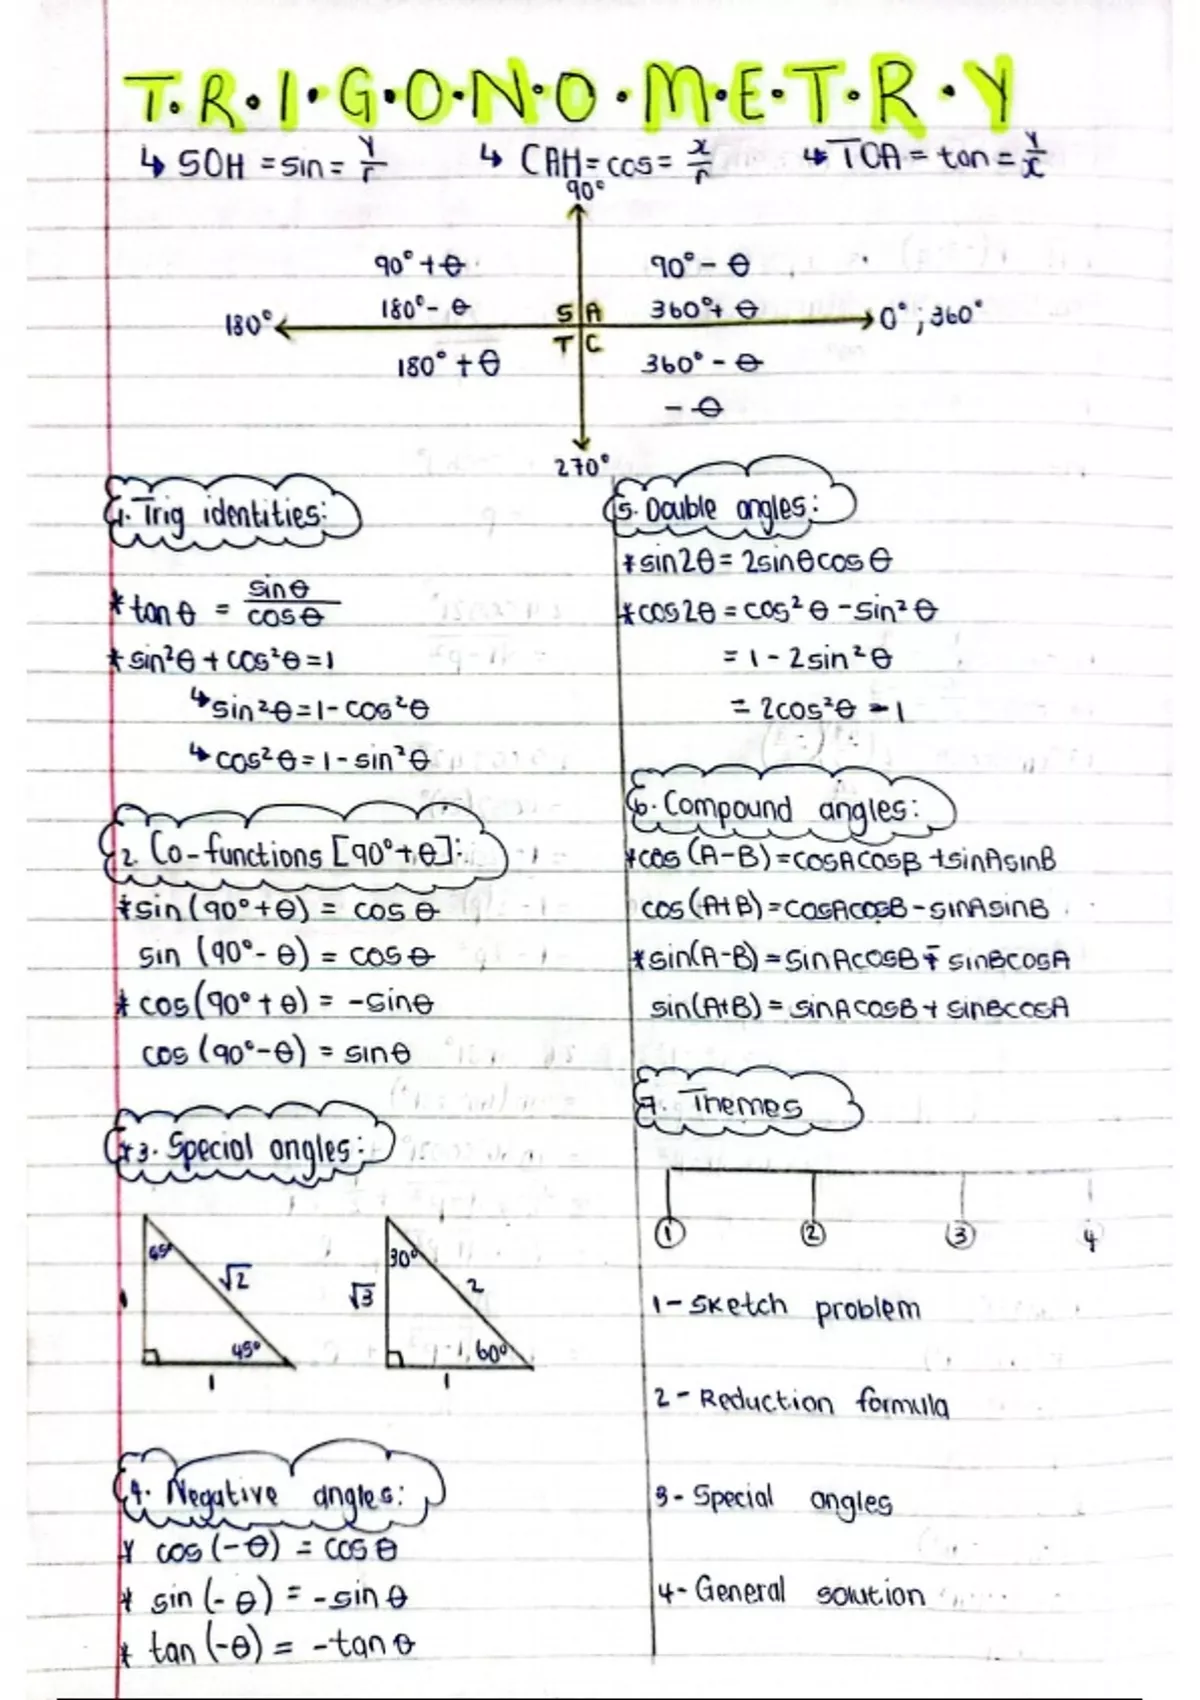 T.R.I.G.O.N.O.M.E.T.R.Y
↳ SOH = sin = y/r ↳ CAH = cos = x/r ↳ TOA = tan = y/x
90°
90° + θ 90° - θ
180° - θ S A 360° + θ
180° 0° ; 360°
T C
180° + θ 360° - θ
- θ
270°
1. Trig identities:
* tan θ = sin θ / cos θ
* sin²θ + cos²θ = 1
↳ sin²θ = 1 - cos²θ
↳ cos²θ = 1 - sin²θ
2. Co-functions [90° + θ]:
* sin (90° + θ) = cos θ
sin (90° - θ) = cos θ
* cos (90° + θ) = -sin θ
cos (90° - θ) = sin θ
* 3. Special angles:
45° √2 45° 1
1
30° √3 2 60°
1
4. Negative angles:
* cos (-θ) = cos θ
* sin (-θ) = -sin θ
* tan (-θ) = -tan θ
5. Double angles:
* sin 2θ = 2 sin θ cos θ
* cos 2θ = cos²θ - sin²θ
= 1 - 2 sin²θ
= 2cos²θ - 1
6. Compound angles:
* cos (A-B) = cosAcosB + sinAsinB
cos (A+B) = cosAcosB - sinAsinB
* sin (A-B) = sinAcosB - sinBcosA
sin (A+B) = sinAcosB + sinBcosA
7. Themes
① ② ③ 4
1 - Sketch problem
2 - Reduction formula
3 - Special angles
4 - General solution